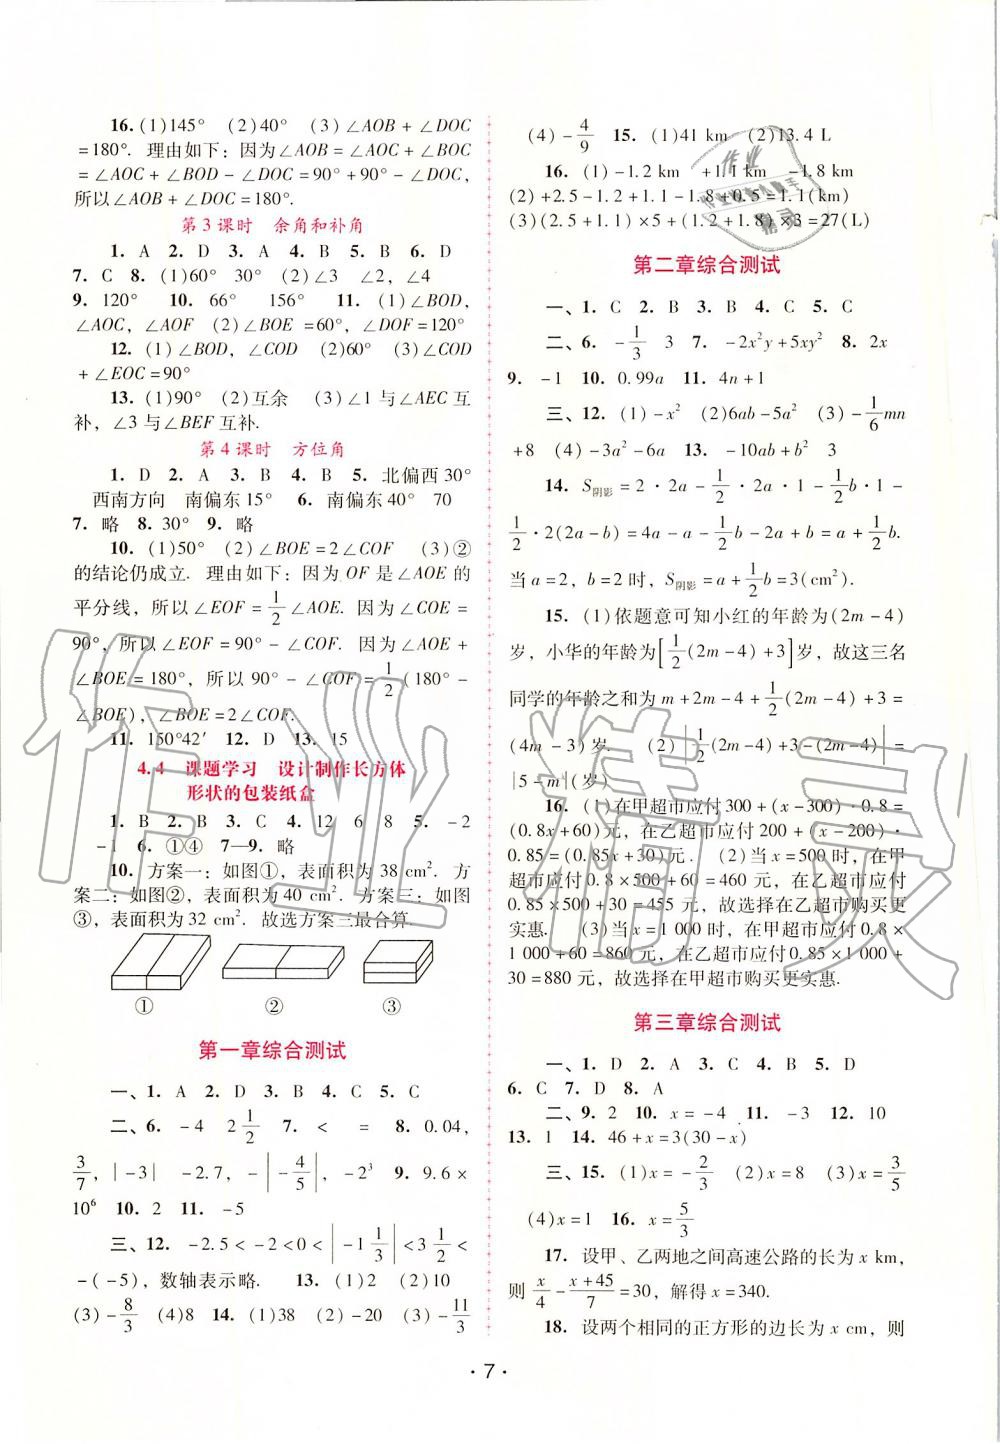 16. (1)145° (2)40° (3)∠AOB+∠DOC
=180°. 理由如下：因为∠AOB=∠AOC+∠BOC
=∠AOC+∠BOD-∠DOC=90°+90°-∠DOC,
所以∠AOB+∠DOC=180°.
第3课时 余角和补角
1. A 2. D 3. A 4. B 5. B 6. D
7. C 8. (1)60° 30° (2)∠3 ∠2，∠4
9. 120° 10. 66° 156° 11. (1)∠BOD,
∠AOC，∠AOF (2)∠BOE=60°，∠DOF=120°
12. (1)∠BOD，∠COD (2)60° (3)∠COD
+∠EOC=90°
13. (1)90° (2)互余 (3)∠1与∠AEC互
补，∠3与∠BEF互补.
第4课时 方位角
1. D 2. A 3. B 4. B 5. 北偏西30°
西南方向 南偏东15° 6. 南偏东40° 70
7. 略 8. 30° 9. 略
10. (1)50° (2)∠BOE=2∠COF (3)②
的结论仍成立. 理由如下：因为OF是∠AOE的
平分线，所以∠EOF=1/2∠AOE. 因为∠COE=
90°，所以∠EOF=90°-∠COF. 因为∠AOE+
∠BOE=180°，所以90°-∠COF=1/2(180°-
∠BOE)，∠BOE=2∠COF.
11. 150°42′ 12. D 13. 15
4.4 课题学习 设计制作长方体
形状的包装纸盒
1. B 2. B 3. C 4. 12 6 8 5. -2
-1 6. ①④ 7—9. 略
10. 方案一：如图①，表面积为38 cm². 方
案二：如图②，表面积为40 cm². 方案三：如图
③，表面积为32 cm². 故选方案三最合算.
① ② ③
第一章综合测试
一、1. A 2. D 3. B 4. C 5. C
二、6. -4 2 1/2 7. < = 8. 0.04,
3/7，|-3| -2.7，-|-4/5|，-2³ 9. 9.6×
10⁶ 10. 2 11. -5
三、12. -2.5<-2<0<|-1 1/3|<3 1/2<
-(-5)，数轴表示略. 13. (1)2 (2)10
(3)-8/3 (4)8 14. (1)38 (2)-20 (3)-11/3
(4)-4/9 15. (1)41 km (2)13.4 L
16. (1)-1.2 km +1.1 km -1.8 km
(2)+2.5-1.2+1.1-1.8+0.5=1.1(km)
(3)(2.5+1.1)×5+(1.2+1.8)×3=27(L)
第二章综合测试
一、1. C 2. B 3. B 4. C 5. C
二、6. -1/3 3 7. -2x²y+5xy² 8. 2x
9. -1 10. 0.99a 11. 4n+1
三、12. (1)-x² (2)6ab-5a² (3)-1/6mn
+8 (4)-3a²-6 13. -10ab+b² 3
14. S阴影=2·2a-1/2·2a·1-1/2b·1-
1/2·2(2a-b)=4a-a-1/2b-2a+b=a+1/2b.
当a=2，b=2时，S阴影=a+1/2b=3(cm²).
15. (1)依题意可知小红的年龄为(2m-4)
岁，小华的年龄为[1/2(2m-4)+3]岁，故这三名
同学的年龄之和为m+2m-4+1/2(2m-4)+3=
(4m-3)岁. (2)|1/2(2m-4)+3-(2m-4)|=
|5-m|(岁)
16. (1)在甲超市应付300+(x-300)·0.8=
(0.8x+60)元，在乙超市应付200+(x-200)·
0.85=(0.85x+30)元. (2)当x=500时，在甲
超市应付0.8×500+60=460元，在乙超市应付
0.85×500+30=455元，故选择在乙超市购买更
实惠. (3)当x=1 000时，在甲超市应付0.8×
1 000+60=860元，在乙超市应付0.85×1 000+
30=880元，故选择在甲超市购买更实惠.
第三章综合测试
一、1. D 2. A 3. C 4. B 5. D
6. C 7. D 8. A
二、9. 2 10. x=-4 11. -3 12. 10
13. 1 14. 46+x=3(30-x)
三、15. (1)x=-2/3 (2)x=8 (3)x=3/5
(4)x=1 16. x=5/3
17. 设甲、乙两地之间高速公路的长为x km，
则x/4-(x+45)/7=30，解得x=340.
18. 设两个相同的正方形的边长为x cm，则
·7·
作业精灵